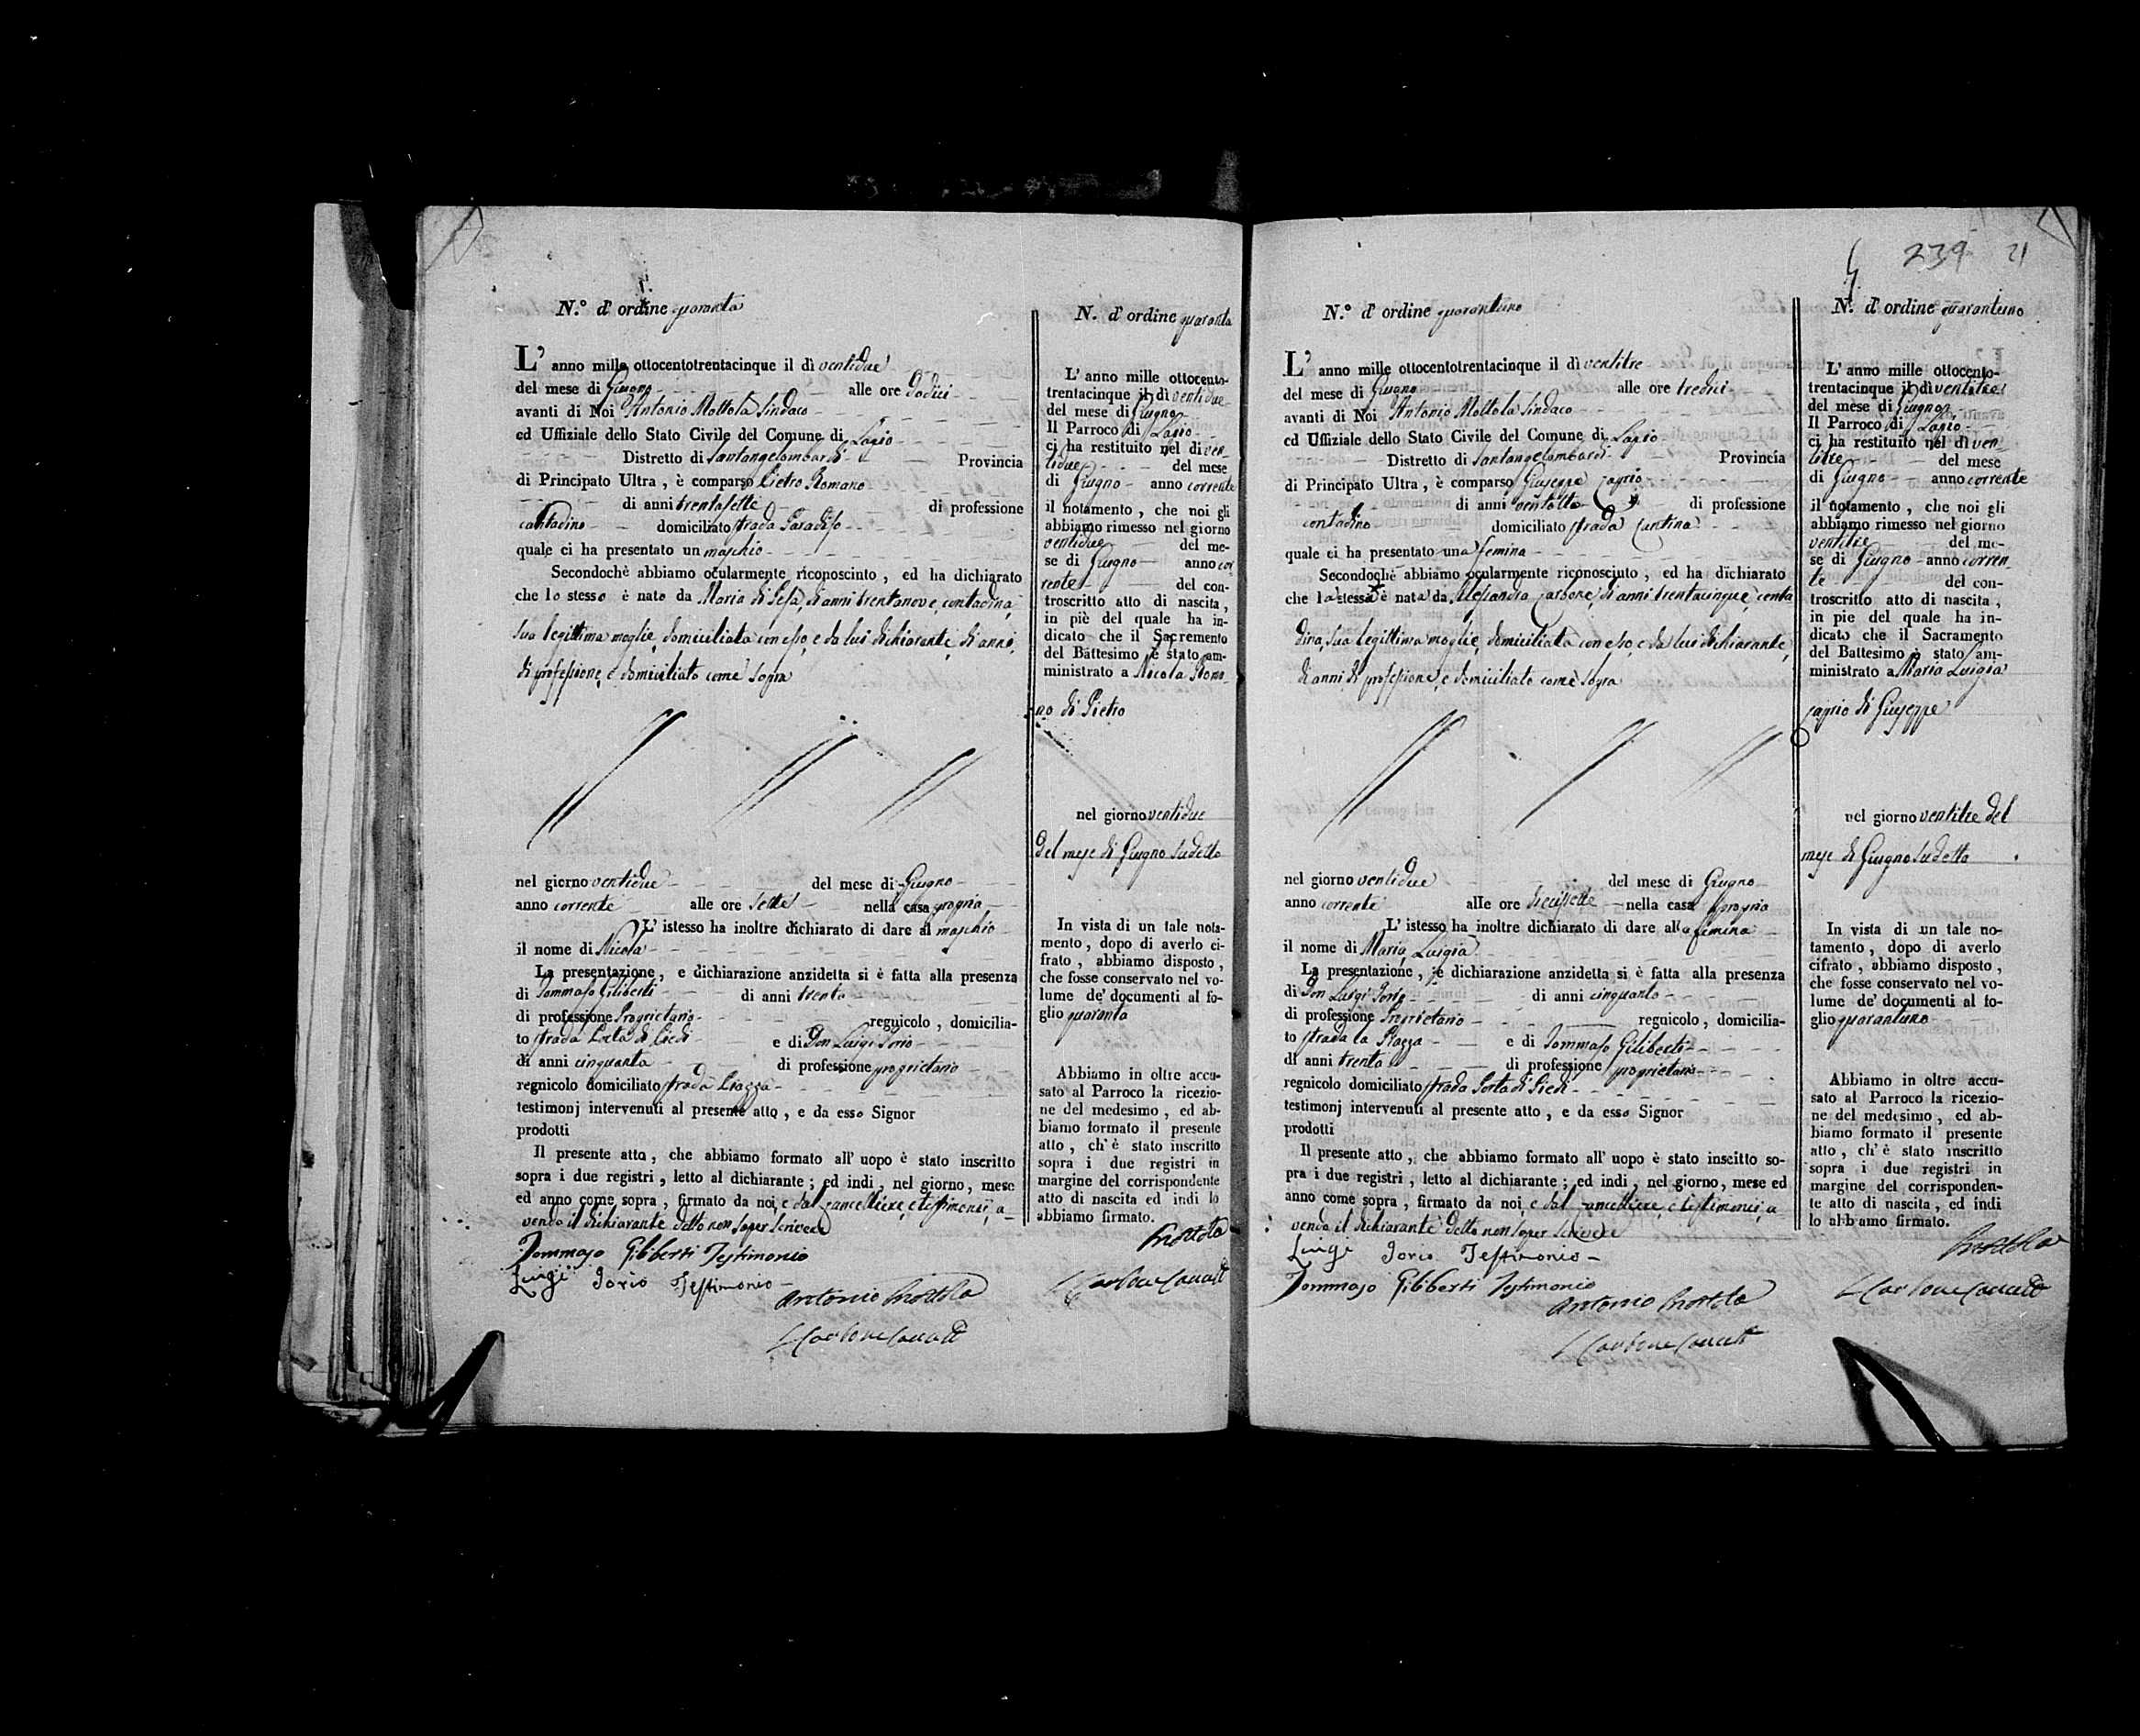 N.º d' ordine quaranta
L' anno mille ottocentotrentacinque il dì ventidue
del mese di Giugno alle ore dodici
avanti di Noi Antonio Mottola Sindaco
ed Uffiziale dello Stato Civile del Comune di Lapio
Distretto di Santangelombardi Provincia
di Principato Ultra, è comparso Pietro Romano
di anni trentasette di professione
contadino domiciliato strada Paradiso
quale ci ha presentato un maschio
Secondochè abbiamo ocularmente riconosciuto, ed ha dichiarato
che lo stesso è nato da Maria di Gesa, di anni trentanove, contadina,
sua legittima moglie, domiciliata con esso, e da lui dichiarante, di anni,
di professione, e domiciliato come sopra
nel giorno ventidue del mese di Giugno
anno corrente alle ore sette nella casa propria
L' istesso ha inoltre dichiarato di dare al maschio
il nome di Nicola
La presentazione, e dichiarazione anzidetta si è fatta alla presenza
di Tommaso Giliberti di anni trenta
di professione Proprietario regnicolo, domicilia-
to strada Porta di Piedi e di Don Luigi Iorio
di anni cinquanta di professione proprietario
regnicolo domiciliato strada Piazza
testimonj intervenuti al presente atto, e da esso Signor
prodotti
Il presente atto, che abbiamo formato all' uopo è stato inscritto
sopra i due registri, letto al dichiarante; ed indi, nel giorno, mese
ed anno come sopra, firmato da noi, e dal Cancelliere, e testimonii, a-
vendo il dichiarante detto non saper scrivere
Tommaso Giliberti Testimonio
Luigi Iorio Testimonio
Antonio Mottola
N. d' ordine quaranta
L' anno mille ottocento-
trentacinque il dì ventidue
del mese di Giugno
Il Parroco di Lapio
ci ha restituito nel dì ven-
tidue del mese
di Giugno anno corrente
il notamento, che noi gli
abbiamo rimesso nel giorno
ventidue del me-
se di Giugno anno cor
rente del con-
troscritto atto di nascita,
in piè del quale ha in-
dicato che il Sacremento
del Battesimo è stato am-
ministrato a Nicola Roma-
no di Pietro
nel giorno ventidue
del mese di Giugno sudetto
In vista di un tale nota-
mento, dopo di averlo ci-
frato, abbiamo disposto,
che fosse conservato nel vo-
lume de' documenti al fo-
glio quaranta
Abbiamo in oltre accu-
sato al Parroco la ricezio-
ne del medesimo, ed ab-
biamo formato il presente
atto, ch' è stato inscritto
sopra i due registri in
margine del corrispondente
atto di nascita ed indi lo
abbiamo firmato.
Mottola
239 21
N.º d' ordine quarantuno
L' anno mille ottocentotrentacinque il dì ventitre
del mese di Giugno alle ore tredici
avanti di Noi Antonio Mottola Sindaco
ed Uffiziale dello Stato Civile del Comune di Lapio
Distretto di Santangelombardi Provincia
di Principato Ultra, è comparso Giuseppe Caprio
di anni ventotto di professione
contadino domiciliato strada Cantina
quale ci ha presentato una femina
Secondochè abbiamo ocularmente riconosciuto, ed ha dichiarato
che la stessa è nata da Alesandra Carbone, di anni trentacinque, conta
dina, sua legittima moglie, domiciliata con esso, e da lui dichiarante,
di anni di professione, e domiciliato come sopra
nel giorno ventidue del mese di Giugno
anno corrente alle ore diecisette nella casa propria
L' istesso ha inoltre dichiarato di dare alla femina
il nome di Maria Luigia
La presentazione, e dichiarazione anzidetta si è fatta alla presenza
di Don Luigi Iorio di anni cinquanta
di professione Proprietario regnicolo, domicilia-
to strada la Piazza e di Tommaso Giliberti
di anni trenta di professione proprietario
regnicolo domiciliato strada Porta di Piedi
testimonj intervenuti al presente atto, e da esso Signor
prodotti
Il presente atto, che abbiamo formato all' uopo è stato inscitto so-
pra i due registri, letto al dichiarante; ed indi, nel giorno, mese ed
anno come sopra, firmato da noi, e dal Cancelliere, e testimonii, a
vendo il dichiarante detto non saper scrivere
Luigi Iorio Testimonio
Tommaso Giliberti Testimonio
Antonio Mottola
N. d' ordine quarantuno
L' anno mille ottocento-
trentacinque il dì ventitre
del mese di Giugno
Il Parroco di Lapio
ci ha restituito nel dì ven-
titre del mese
di Giugno anno corrente
il notamento, che noi gli
abbiamo rimesso nel giorno
ventitre del me-
se di Giugno anno corren-
te del con-
troscritto atto di nascita,
in pie del quale ha in-
dicato che il Sacramento
del Battesimo è stato am-
ministrato a Maria Luigia
Caprio di Giuseppe
nel giorno ventitre del
mese di Giugno sudetto
In vista di un tale no-
tamento, dopo di averlo
cifrato, abbiamo disposto,
che fosse conservato nel vo-
lume de' documenti al fo-
glio quarantuno
Abbiamo in oltre accu-
sato al Parroco la ricezio-
ne del medesimo, ed ab-
biamo formato il presente
atto, ch' è stato inscritto
sopra i due registri in
margine del corrisponden-
te atto di nascita, ed indi
lo abbiamo firmato.
Mottola